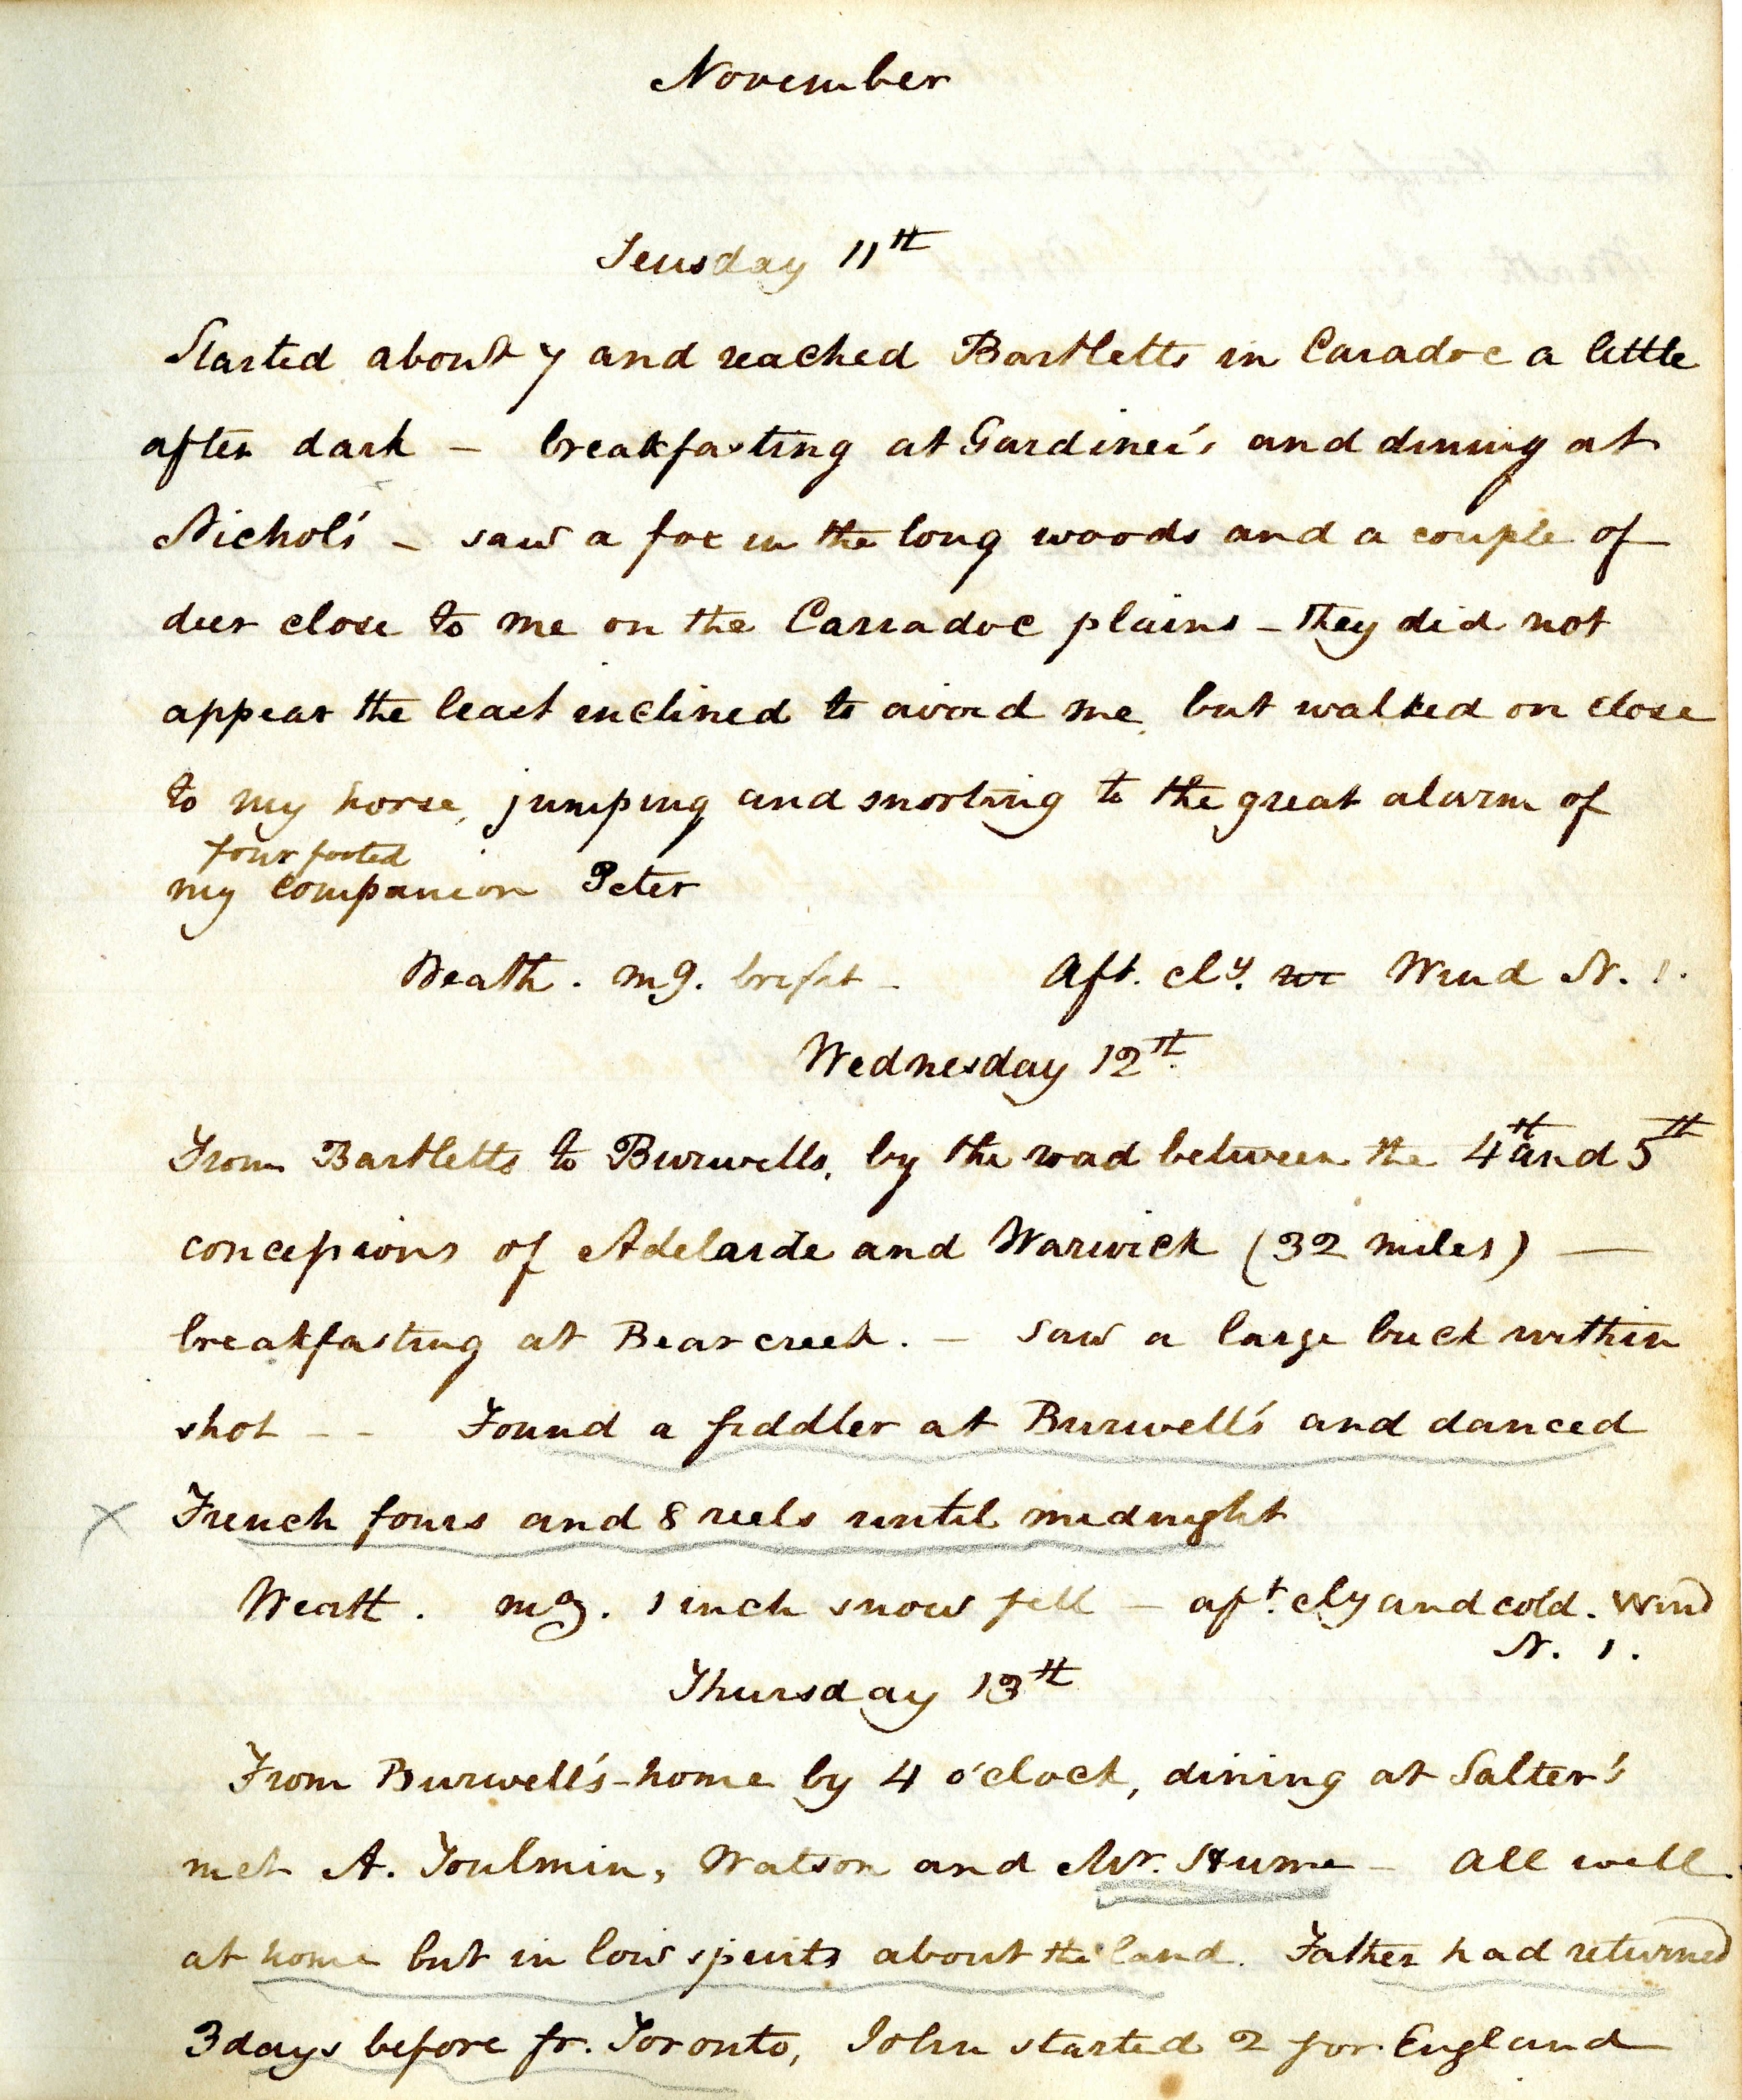 November
Teusday 11th
Started about 7 and reached Bartletts in Caradoc a little
after dark – breakfasting at Gardiner's and dining at
Nichol's – saw a fox in the long woods and a couple of
deer close to me on the Carradoc plains – they did not
appear the least inclined to avoid me, but walked on close
to my horse, jumping and snorting to the great alarm of
four footed
my companion Peter
Weath. mg. bright – Aft. cly. Wind N. 1.
Wednesday 12th
From Bartletts to Burwells, by the road between the 4th and 5th
concessions of Adelaide and Warwick (32 miles) —
breakfasting at Bear creek. – saw a large buck within
shot – – Found a fiddler at Burwell's and danced
French fours and 8 reels until midnight
Weath. mg. 1 inch snow fell – aft. cly and cold. Wind
N. 1.
Thursday 13th
From Burwell's – home by 4 o'clock, dining at Salter's
met A. Toulmin, Watson and Mr. Hume – all well
at home but in low spirits about the land. Father had returned
3 days before fr. Toronto, John started 2 for England